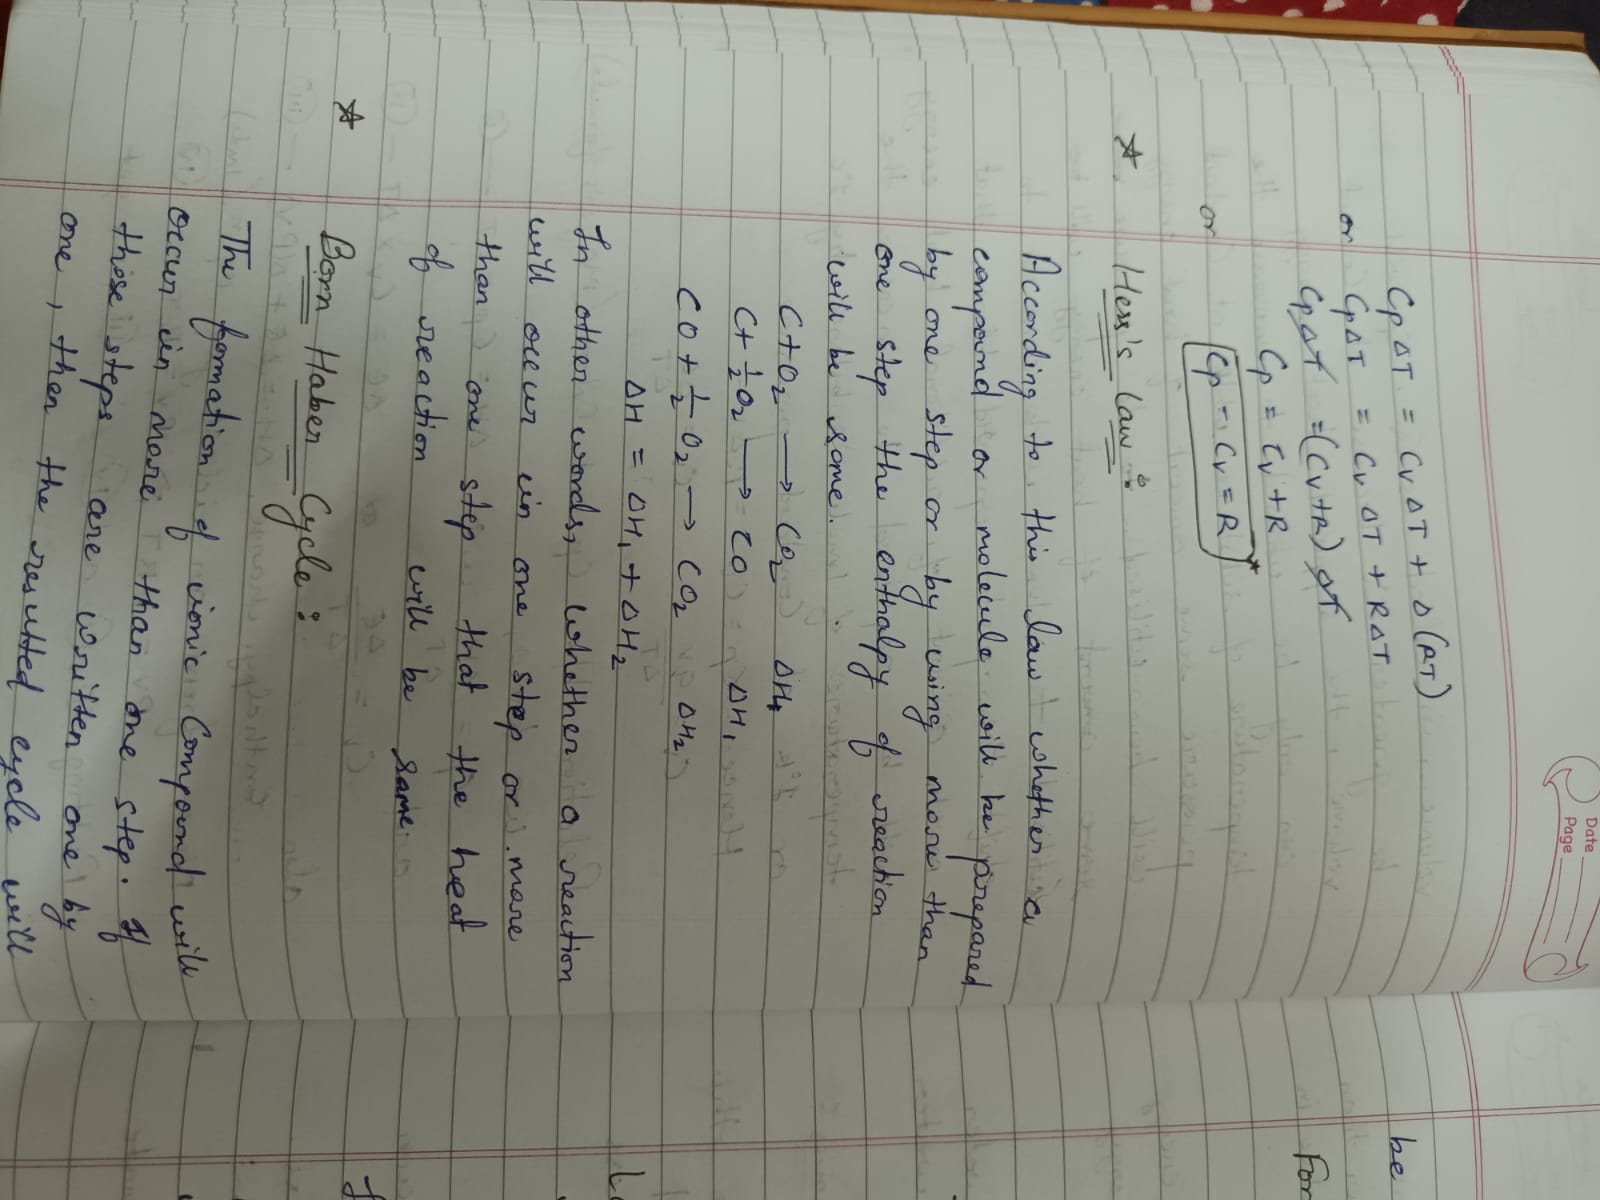 Date
Page
CpΔT = CvΔT + Δ(RT)
or CpΔT = CvΔT + RΔT
CpΔT = (Cv+R) ΔT
Cp = Cv + R
or Cp - Cv = R *
* Hess's law :
According to this law whether a
compound or molecule will be prepared
by one step or by using more than
one step the enthalpy of reaction
will be same.
C + O2 → CO2 ΔH
C + 1/2 O2 → CO ΔH1
CO + 1/2 O2 → CO2 ΔH2
ΔH = ΔH1 + ΔH2
In other words, whether a reaction
will occur in one step or more
than one step that the heat
of reaction will be same.
* Born Haber Cycle :
The formation of ionic Compound will
occur in more than one step. If
those steps are written one by
one, then the resulted cycle will
be
For